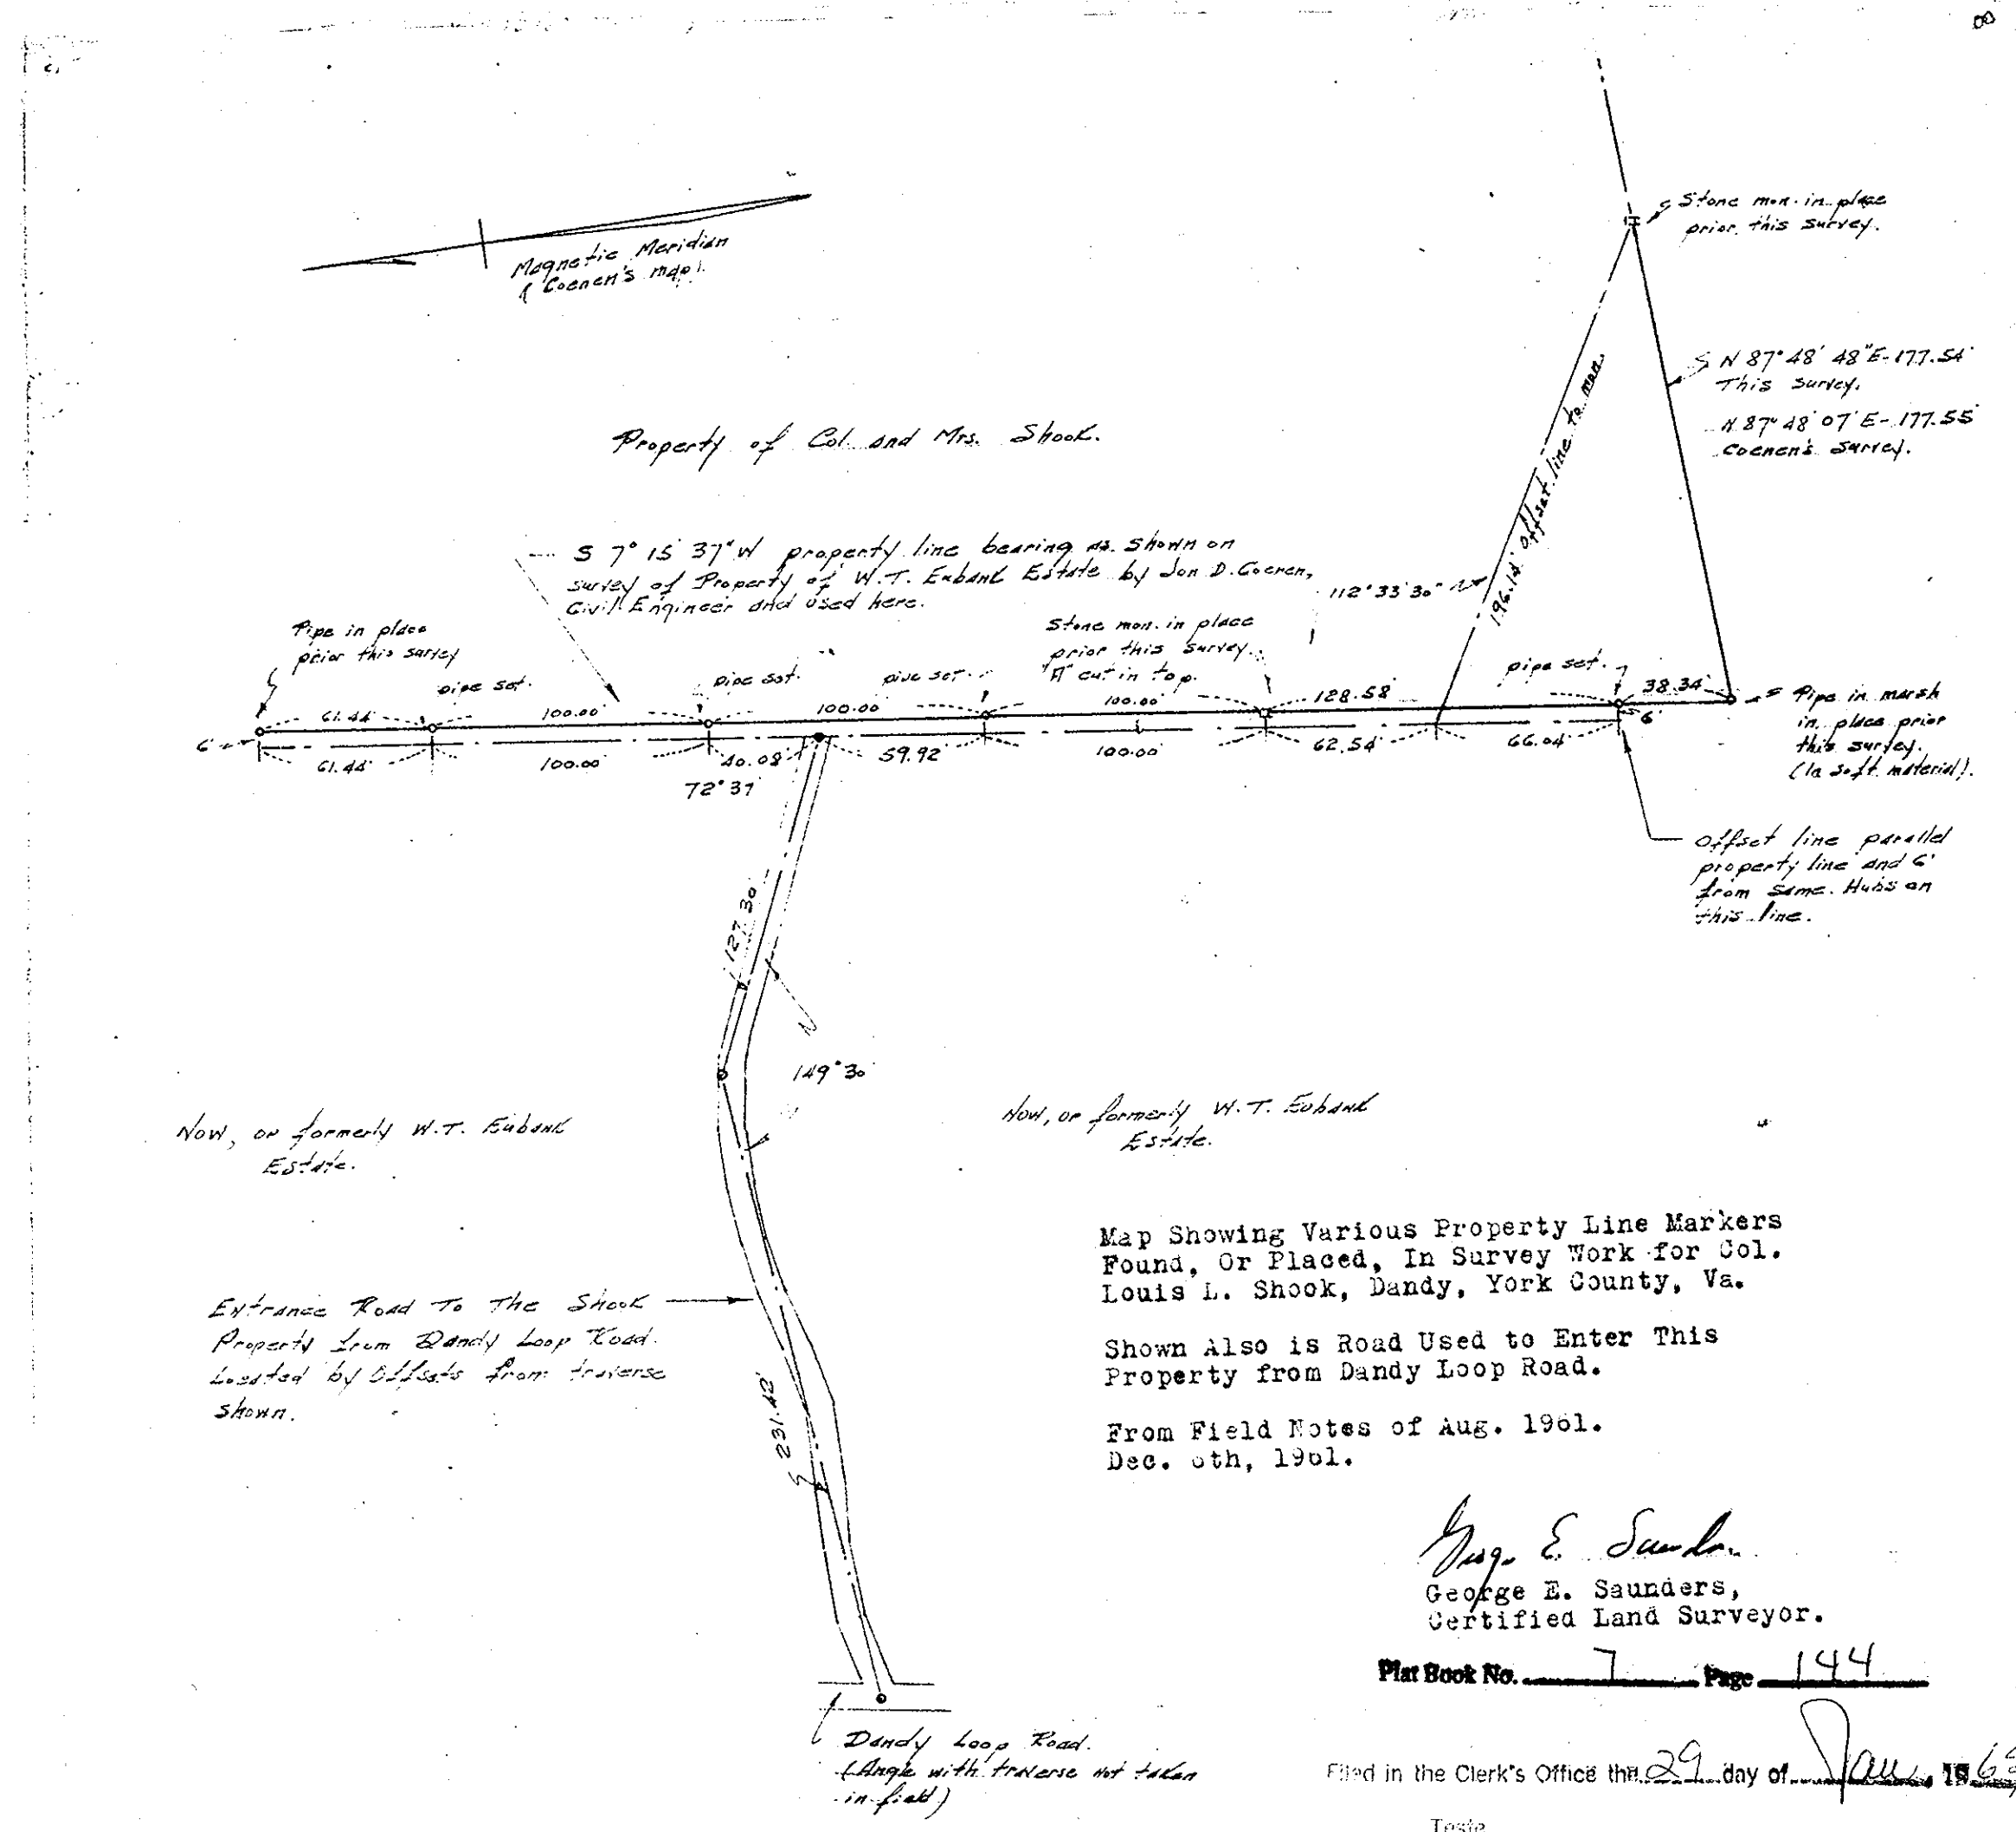 Stone mon. in place
prior this survey.
Magnetic Meridian
(Coenen's map).
N 87° 48' 48" E - 177.54'
This survey.
N 87° 48' 07" E - 177.55'
Coenen's Survey.
196.14' offset line to mon.
Property of Col. and Mrs. Shook.
S 7° 15' 37" W property line bearing as shown on
survey of Property of W.T. Eubank Estate by Jon D. Coenen,
Civil Engineer and used here.
112° 33' 30"
Pipe in place
prior this survey
Stone mon. in place
prior this survey.
cut in top.
pipe set.
pipe set.
pipe set.
pipe set.
61.44'
100.00'
100.00'
100.00'
128.58'
38.34'
Pipe in marsh
in place prior
this survey.
(In soft material).
6'
6'
61.44'
100.00'
40.08'
59.92'
100.00'
62.54'
66.04'
72° 37'
Offset line parallel
property line and 6'
from same. Hubs on
this line.
127.30'
149° 30'
Now, or formerly W.T. Eubank
Estate.
Now, or formerly W.T. Eubank
Estate.
Entrance Road To The Shook
Property from Dandy Loop Road.
Located by Offsets from traverse
shown.
231.42'
Map Showing Various Property Line Markers
Found, Or Placed, In Survey Work for Col.
Louis L. Shook, Dandy, York County, Va.
Shown Also is Road Used to Enter This
Property from Dandy Loop Road.
From Field Notes of Aug. 1961.
Dec. 6th, 1961.
George E. Saunders
George E. Saunders,
Certified Land Surveyor.
Plat Book No. 7 Page 144
Dandy Loop Road.
(Angle with traverse not taken
in field)
Filed in the Clerk's Office the 29 day of Jan, 19
Teste